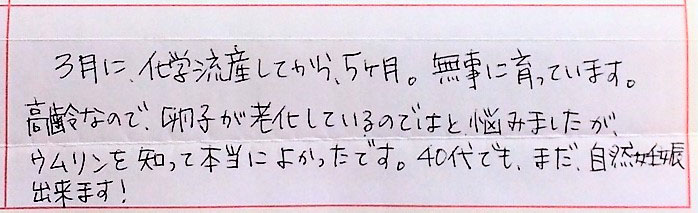 3月に、化学流産してから、5ヶ月。無事に育っています。
高齢なので、卵子が老化しているのではと、悩みましたが、
ウムリンを知って本当によかったです。40代でも、まだ、自然妊娠
出来ます!